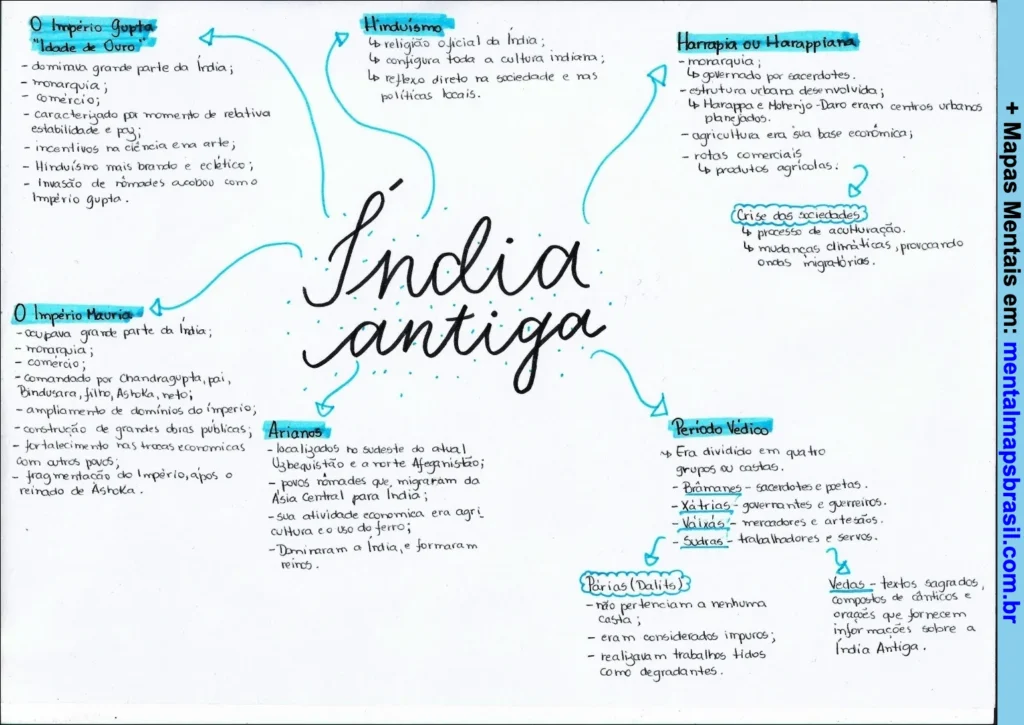 O Império Gupta
"Idade de Ouro"
- dominava grande parte da Índia;
- monarquia;
- comércio;
- caracterizado por momento de relativa
estabilidade e paz;
- incentivos na ciência e na arte;
- Hinduísmo mais brando e eclético;
- Invasão de nômades acabou com o
Império gupta.
Hinduísmo
↳ religião oficial da Índia;
↳ configura toda a cultura indiana;
↳ reflexo direto na sociedade e nas
políticas locais.
Harrapia ou Harappiana
- monarquia;
↳ governado por sacerdotes.
- estrutura urbana desenvolvida;
↳ Harappa e Mohenjo-Daro eram centros urbanos
planejados.
- agricultura era sua base econômica;
- rotas comerciais
↳ produtos agrícolas.
Crise das sociedades
↳ processo de aculturação.
↳ mudanças climáticas, provocando
ondas migratórias.
Índia
antiga
O Império Mauria
- ocupava grande parte da Índia;
- monarquia;
- comércio;
- comandado por Chandragupta, pai,
Bindusara, filho, Ashoka, neto;
- ampliamento de domínios do império;
- construção de grandes obras públicas;
- fortalecimento nas trocas economicas
com outros povos;
- fragmentação do Império, após o
reinado de Ashoka.
Arianos
- localizados no sudeste do atual
Uzbequistão e a norte Afeganistão;
- povos nômades que, migraram da
Ásia Central para Índia;
- sua atividade economica era agri_
cultura e o uso do ferro;
- Dominaram a Índia, e formaram
reinos.
Período Védico
↳ Era dividido em quatro
grupos ou castas.
- Brâmanes - sacerdotes e poetas.
- Xátrias - governantes e guerreiros.
- Vaixás - mercadores e artesãos.
- Sudras - trabalhadores e servos.
Párias (Dalits)
- não pertenciam a nenhuma
casta;
- eram considerados impuros;
- realizavam trabalhos tidos
como degradantes.
Vedas - textos sagrados,
compostos de cânticos e
orações que fornecem
informações sobre a
Índia Antiga.
+ Mapas Mentais em: mentalmapsbrasil.com.br